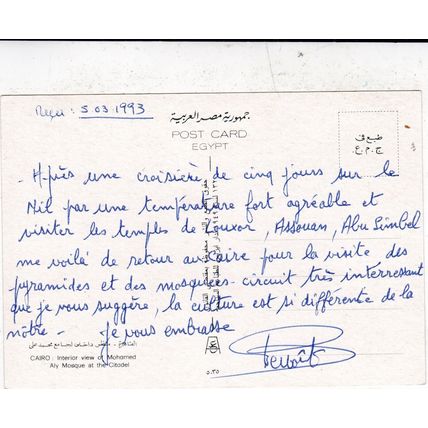 Reçu : 5.03.1993
جمهورية مصر العربية
POST CARD
EGYPT
طبع في
ج.م.ع.
- Après une croisière de cinq jours sur le
Nil par une température fort agréable et
visiter les temples de Louxor, Assouan, Abu Simbel
me voilà de retour au Caire pour la visite des
pyramides et des mosquées - circuit très interressant
que je vous suggère, la culture est si différente de la
nôtre - je vous embrasse
Benoît
CAIRO : Interior view of Mohamed
Aly Mosque at the Citadel